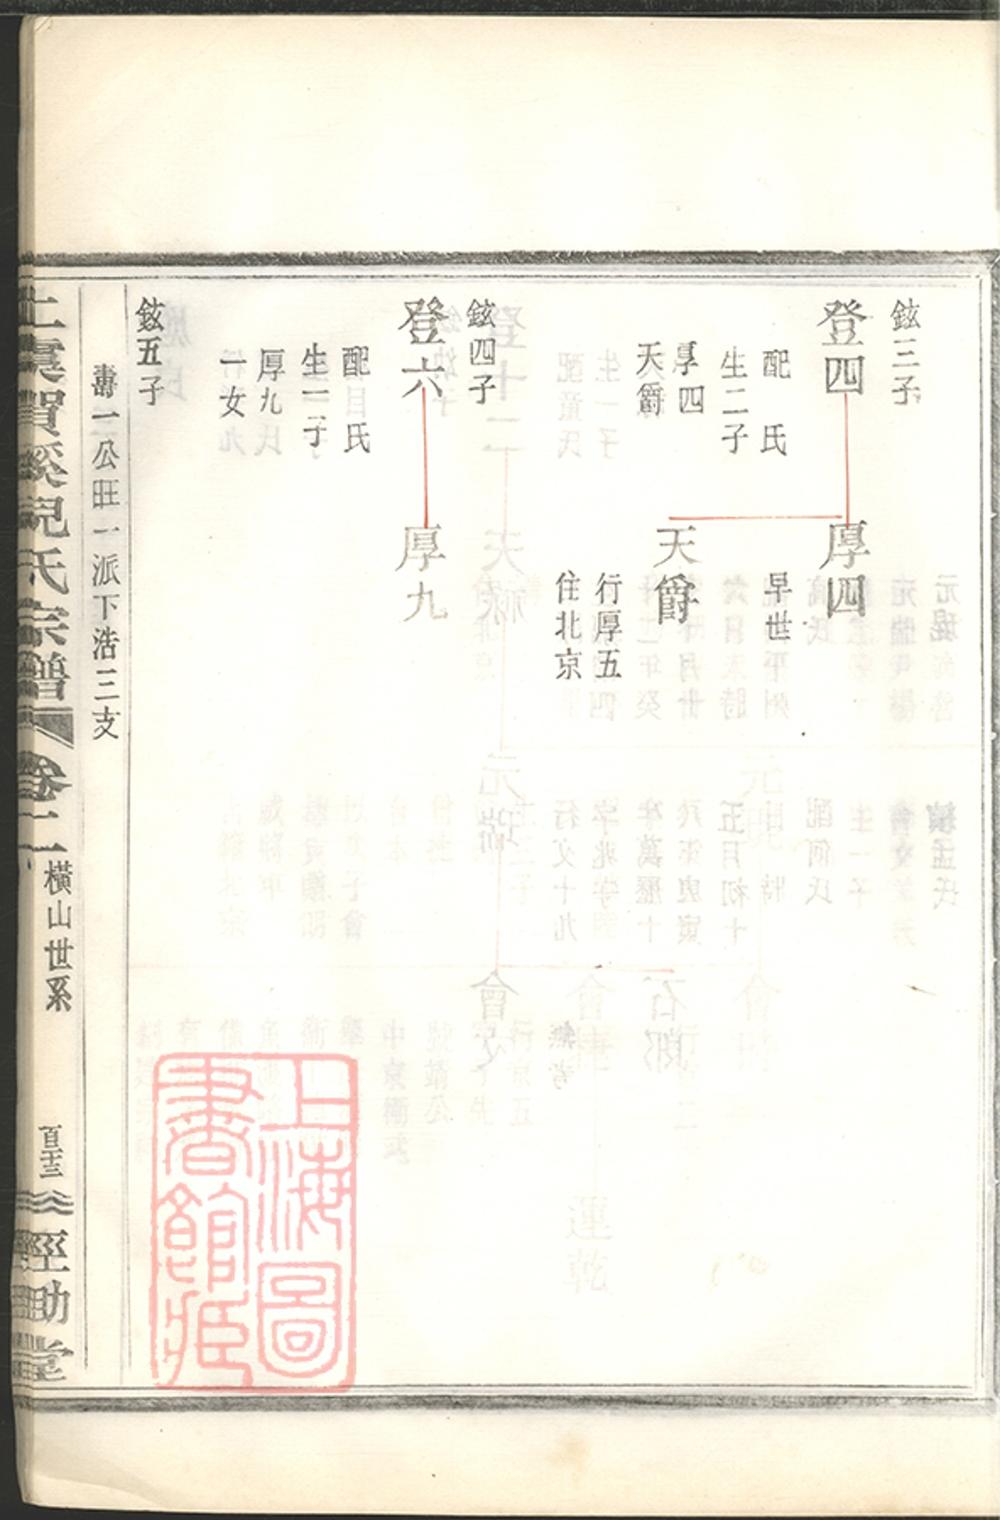 鉉三子
登四
配　氏
生二子
厚四
天爵
厚四
早世
天爵
行厚五
住北京
鉉四子
登六
配　氏
生一子
厚九
一女
厚九
鉉五子
壽一公旺一派下浩三支
上虞賀溪兒氏宗譜
卷十一
橫山世系
百十三
經助堂
上海圖
書館藏